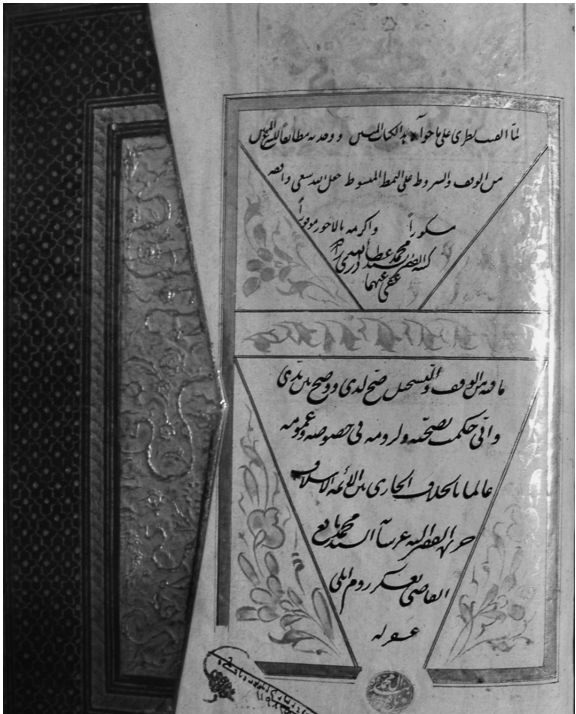 لما القيت نظرى على ما حواه هذا الكتاب المبين ووجدته مطابقا
من الوقف والشروط على النمط المبسوط جعل الله سعى واقفه
مشكوراً واكرمه بالاجور موفوراً
كتبه الفقير السيد محمد عطاء الله
عفى عنهما
ما فيه من الوقف والتسجيل صح لدى ووضح بين يدى
وانى حكمت بصحته ولزومه فى خصوصه وعمومه
عالما بالخلاف الجارى بين الائمة الاسلاف
حرره الفقير اليه عز شأنه السيد محمد
القاضى بعسكر روم ايلى
غفر له